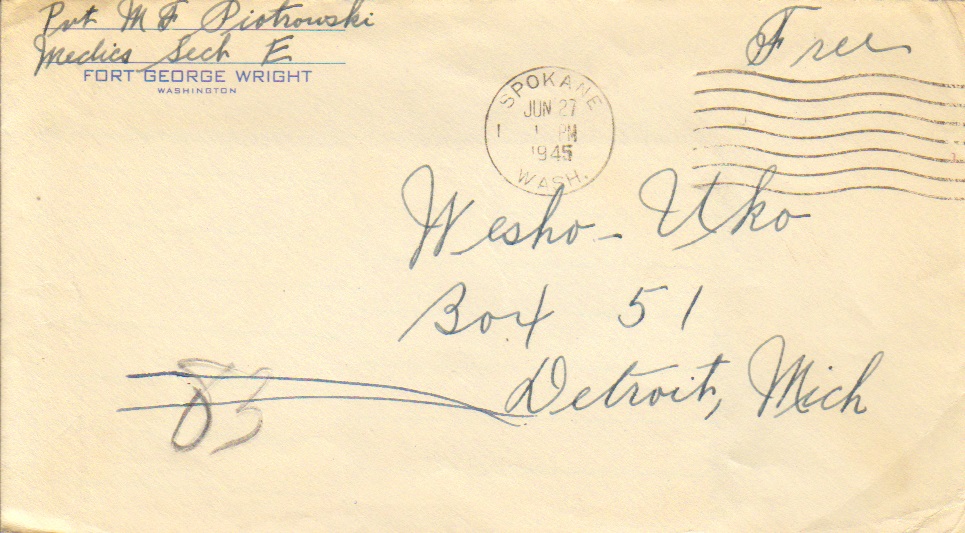 Pvt M F Piotrowski
Medics Sech E
FORT GEORGE WRIGHT
WASHINGTON
Free
SPOKANE
JUN 27
1 PM
1945
WASH.
Wesho-Uko
Box 51
Detroit, Mich
83